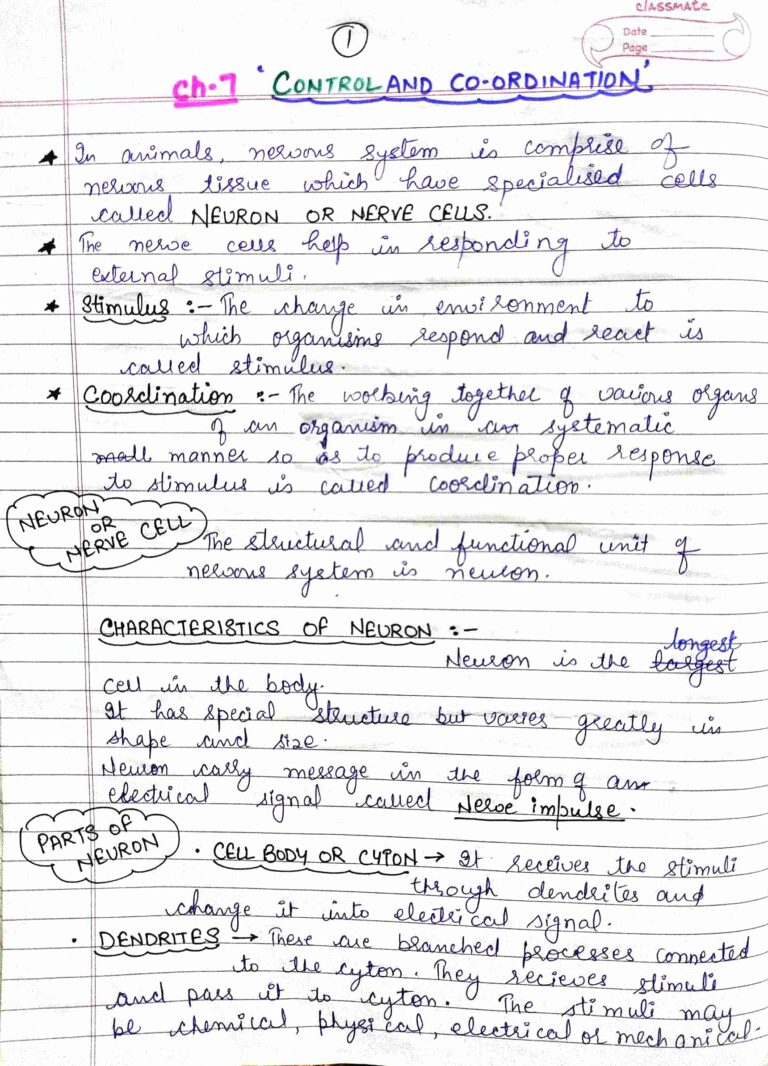 classmate
Date
Page
1
Ch-7 'CONTROL AND CO-ORDINATION'
In animals, nervous system is comprise of
nervous tissue which have specialised cells
called NEURON OR NERVE CELLS.
The nerve cells help in responding to
external stimuli.
Stimulus :- The change in environment to
which organisms respond and react is
called stimulus.
Coordination :- The working together of various organs
of an organism in an systematic
small manner so as to produce proper response
to stimulus is called coordination.
NEURON
OR
NERVE CELL
The structural and functional unit of
nervous system is neuron.
CHARACTERISTICS OF NEURON :-
longest
Neuron is the largest
cell in the body.
It has special structure but varies greatly in
shape and size.
Neuron carry message in the form of an
electrical signal called Nerve impulse.
PARTS OF
NEURON
• CELL BODY OR CYTON → It receives the stimuli
through dendrites and
change it into electrical signal.
• DENDRITES → These are branched processes connected
to the cyton. They recieves stimuli
and pass it to cyton. The stimuli may
be chemical, physical, electrical or mechanical.